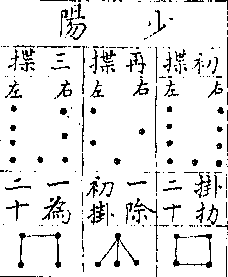 少陽
初揲
右 左
掛扐
二十
再揲
右 左
一除
初掛
三揲
右 左
一為
二十